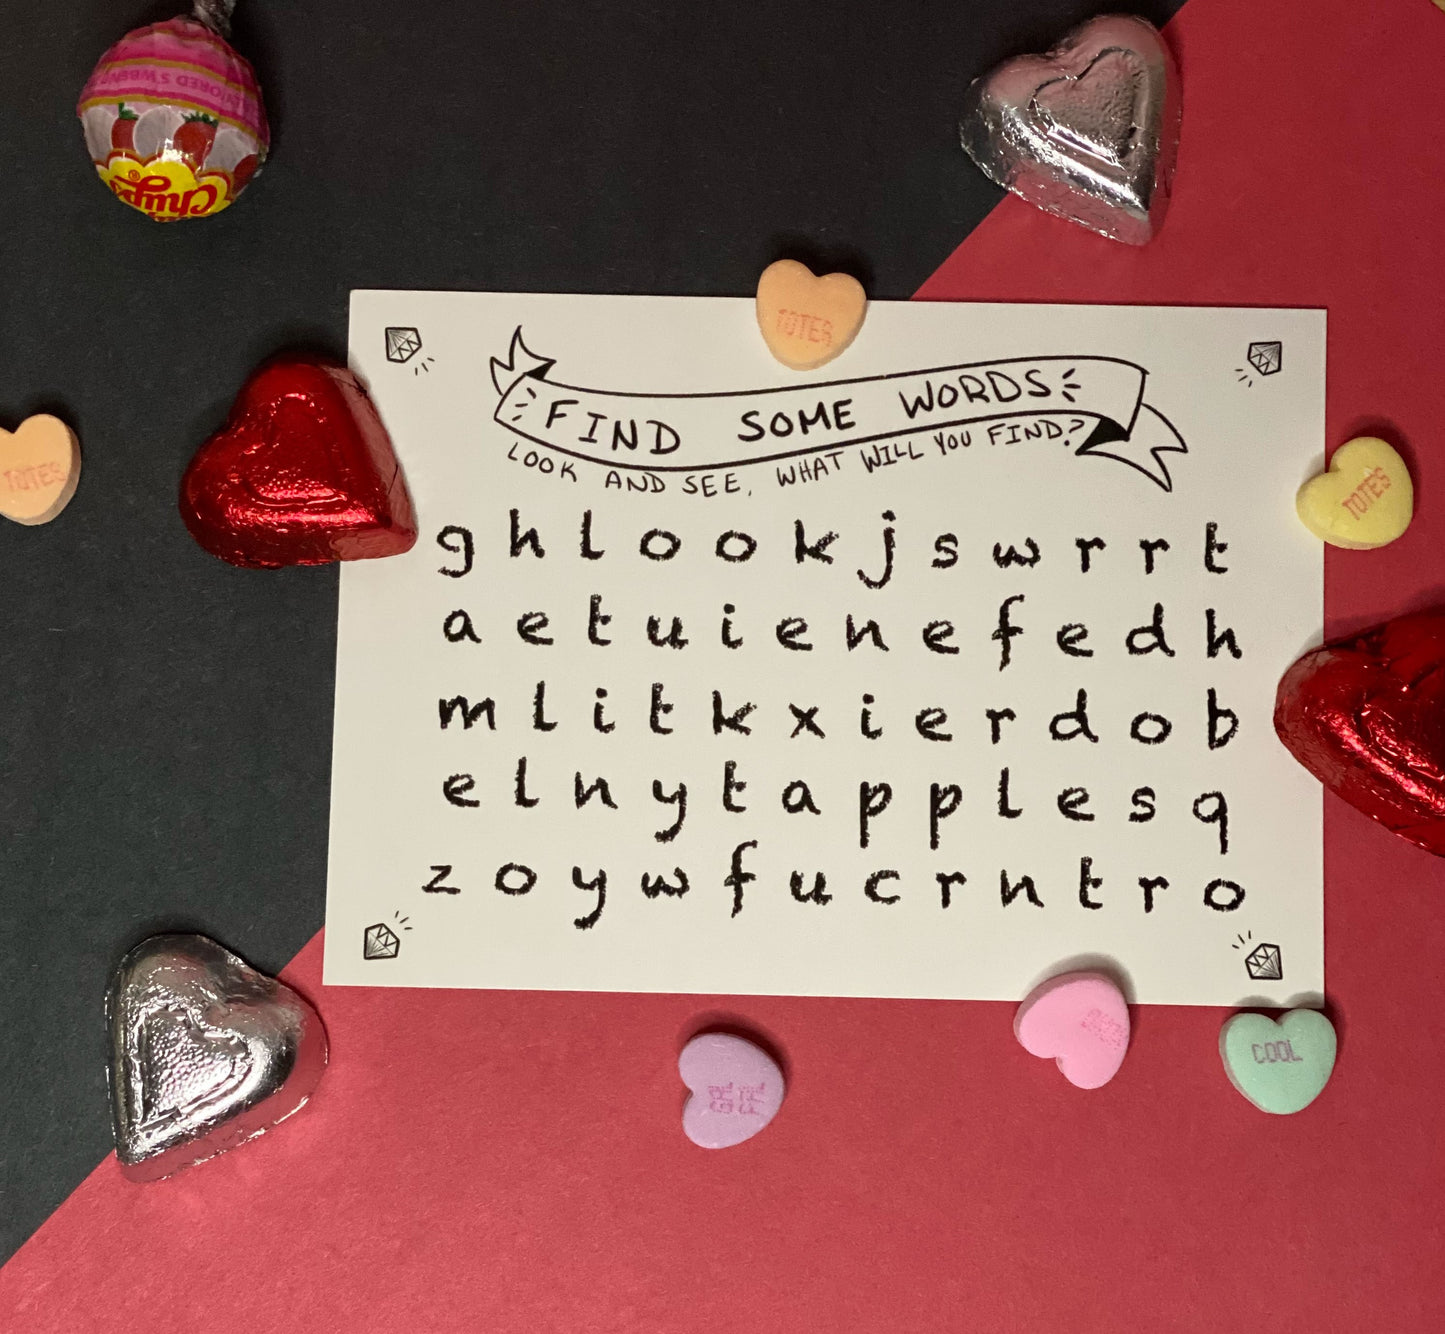 TOTES
FIND SOME WORDS
LOOK AND SEE, WHAT WILL YOU FIND?
TOTES
TOTES
g h l o o k j s w r r t
a e t u i e n e f e d h
m l i t k x i e r d o b
e l n y t a p p l e s q
z o y w f u c r n t r o
COOL